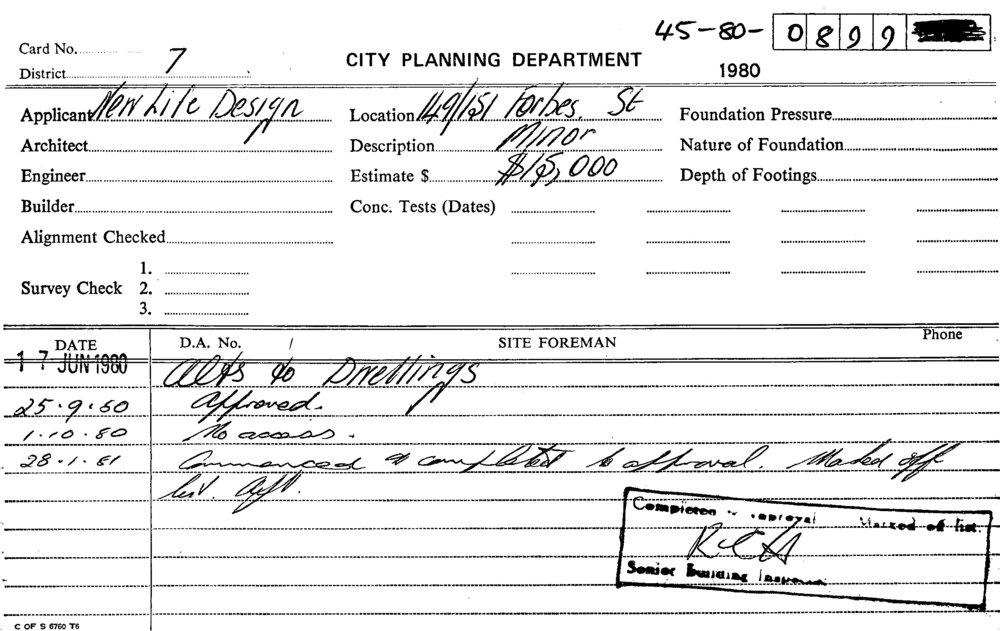 45-80- 0899
Card No. 7
CITY PLANNING DEPARTMENT
District
1980
Applicant New Life Design
Location 149/151 Forbes. St
Foundation Pressure
Architect
Description Minor
Nature of Foundation
Engineer
Estimate $ $15,000
Depth of Footings
Builder
Conc. Tests (Dates)
Alignment Checked
1.
Survey Check 2.
3.
DATE D.A. No. SITE FOREMAN Phone
17 JUN 1980 Alts to Dwellings
25.9.80 Approved.
1.10.80 No access.
28.1.81 Commenced & completed to approval. Marked off
list.
Completed to approval Marked off list.
Senior Building Inspector
C OF S 6760 T6